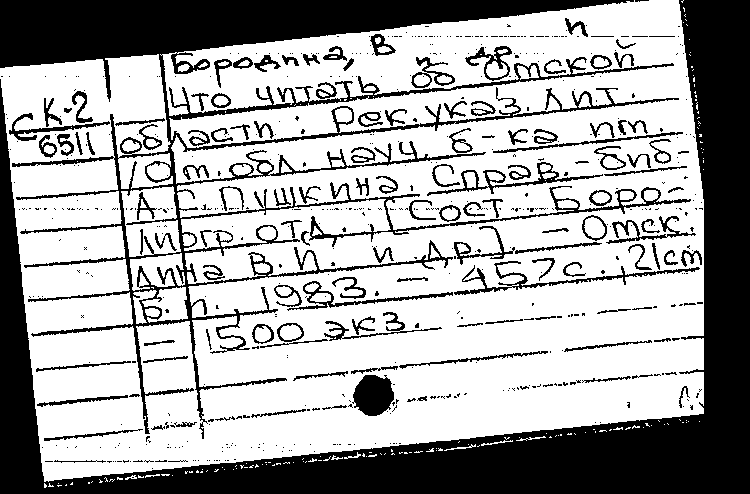 Бородина, В п
и др.
Что читать об Омской
СК-2
6511
области : Рек. указ. лит.
/ Ом. обл. науч. б-ка им.
А. С. Пушкина. Справ.-биб-
лиогр. отд., [Сост : Боро-
дина В. П. и др.]. — Омск:
Б. и., 1983. — 457 с. ; 21 cm
— 1500 экз.